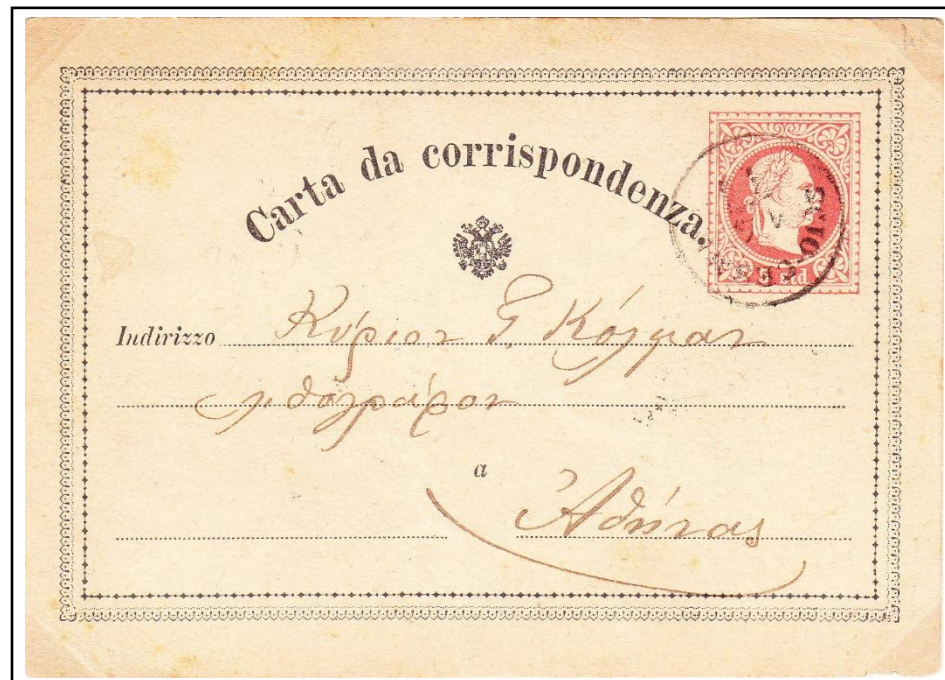 Carta da corrispondenza.
Indirizzo Κύριον Γ. Κόλμαν
λιθογράφον
a
Ἀθήνας